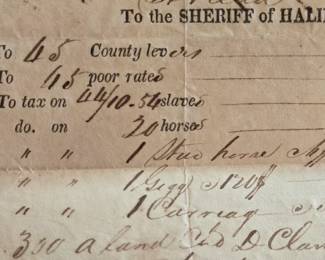 To the SHERIFF of HALI
To 45 County levies
To 45 poor rates
To tax on 44/10-54 slaves
do. on 20 horses
" " 1 Stud horse
" " 1 Gigg $120
" " 1 Carriag
350 a land D Clar